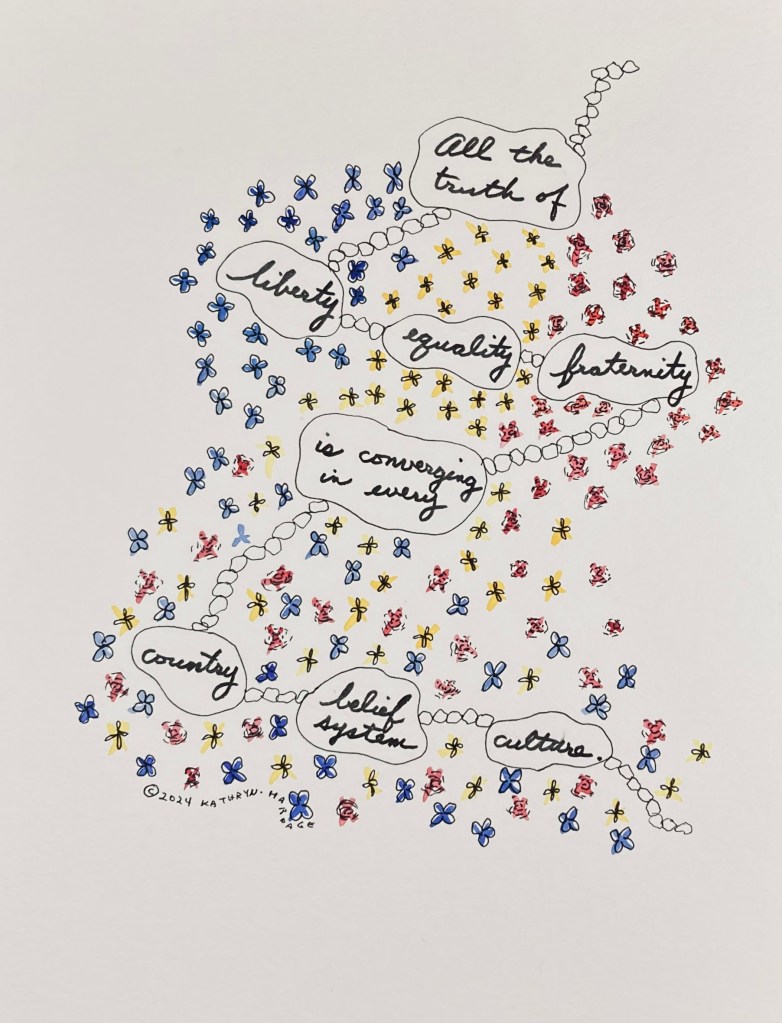 All the
truth of
liberty
equality
fraternity
is converging
in every
country
belief
system
culture.
©2024 KATHRYN.